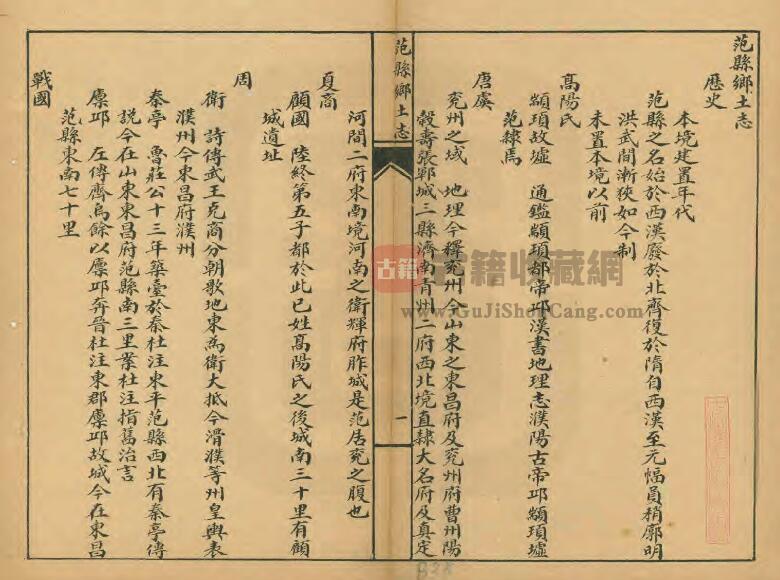 范縣鄉土志
歷史
本境建置年代
范縣之名始於西漢廢於北齊復於隋自西漢至元幅員稍廓明
洪武間漸狹如今制
未置本境以前
高陽氏
顓頊故墟 通鑑顓頊都帝邱漢書地理志濮陽古帝邱顓頊墟
范隸焉
唐虞
兗州之域 地理今釋兗州今山東之東昌府及兗州府曹州陽
穀壽張鄆城三縣濟南青州二府西北境直隸大名府及真定
范縣鄉土志
一
河間二府東南境河南之衛輝府胙城是范居兗之腹也
夏商
顧國 陸終第五子都於此已姓高陽氏之後城南三十里有顧
城遺址
周
衛 詩傳武王克商分朝歌地東為衛大抵今滑濮等州皇輿表
濮州今東昌府濮州
秦亭 魯莊公十三年築臺於秦杜注東平范縣西北有秦亭傳
說今在山東東昌府范縣南三里案杜注指舊治言
廩邱 左傳齊烏餘以廩邱奔晉杜注東郡廩邱故城今在東昌
范縣東南七十里
戰國
古籍
古籍收藏網
www.GuJiShouCang.com